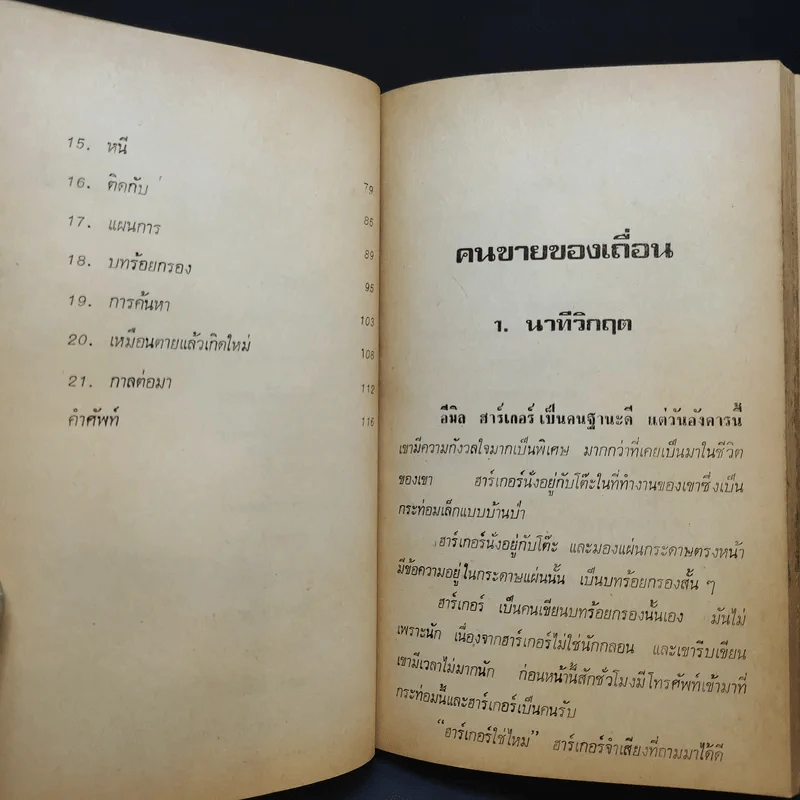 15. หนี 79
16. ติดกับ 85
17. แผนการ 89
18. บทร้อยกรอง 95
19. การค้นหา 103
20. เหมือนตายแล้วเกิดใหม่ 108
21. กาลต่อมา 112
คำศัพท์ 116
คนขายของเถื่อน
1. นาทีวิกฤต
อีมิล ฮาร์เกอร์ เป็นคนฐานะดี แต่วันอังคารนี้
เขามีความกังวลใจมากเป็นพิเศษ มากกว่าที่เคยเป็นมาในชีวิต
ของเขา ฮาร์เกอร์นั่งอยู่กับโต๊ะในที่ทำงานของเขาซึ่งเป็น
กระท่อมเล็กแบบบ้านป่า
ฮาร์เกอร์นั่งอยู่กับโต๊ะ และมองแผ่นกระดาษตรงหน้า
มีข้อความอยู่ในกระดาษแผ่นนั้น เป็นบทร้อยกรองสั้น ๆ
ฮาร์เกอร์ เป็นคนเขียนบทร้อยกรองนั้นเอง มันไม่
เพราะนัก เนื่องจากฮาร์เกอร์ไม่ใช่นักกลอน และเขารีบเขียน
เขามีเวลาไม่มากนัก ก่อนหน้านี้สักชั่วโมงมีโทรศัพท์เข้ามาที่
กระท่อมนี้และฮาร์เกอร์เป็นคนรับ
"ฮาร์เกอร์ใช่ไหม" ฮาร์เกอร์จำเสียงที่ถามมาได้ดี